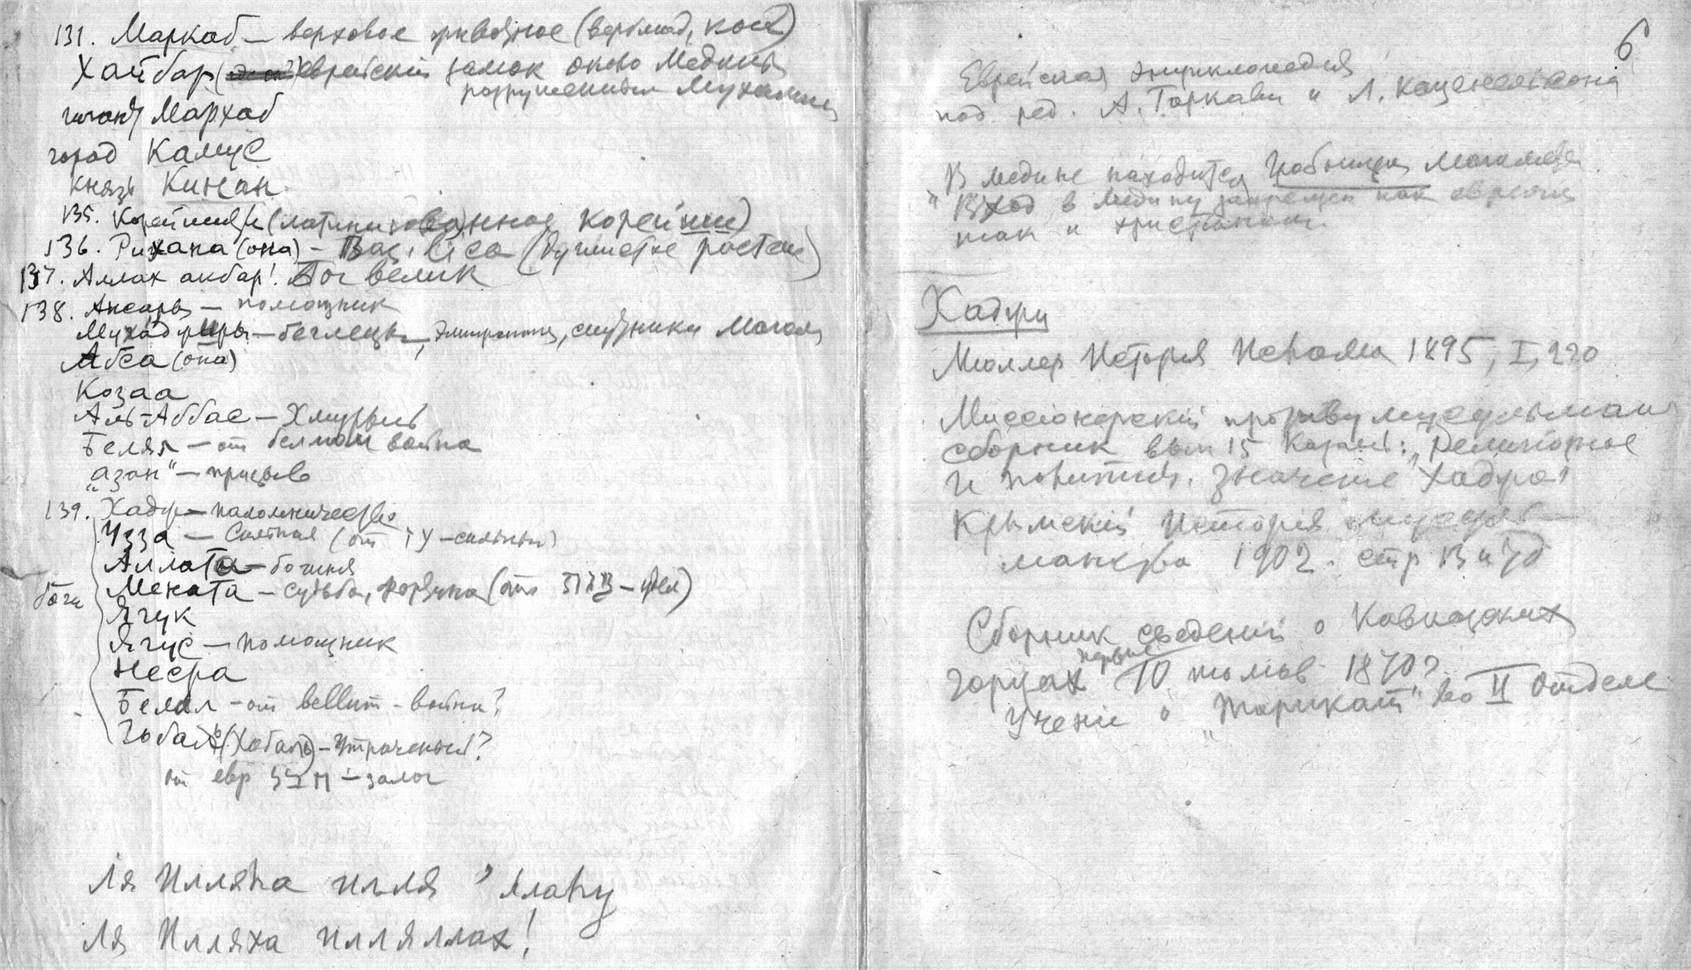 131. Маркаб – верховое животное (верблюд, конь)
Хайбар еврейскій замок около Медины
разрушенный
Мархаб
город Камус
князь Кинан
135. Корейшиды (латинизованное корейши)
136. Рихана (она) –
137. Аллах акбар! Бог велик
138. Ансары – помощник
Мухаджиры – беглецы, эмигранты, спутники
Абса (она)
Козаа
Аль-Аббас – Хмурый
Белял – от война
„азан“ – призыв
139. Хадж – паломничество
Узза – (от
Аллата – богиня
боги Мената – судьба, (от – удел)
Ягук
Ягус – помощник
Несра
Белял – от bellum – война?
Гобаль (Хобаль) – Утраченный?
от евр – залог
Ля Илляha илля Аллаhу
Ля Илляха илляллах!
6
Еврейская энциклопедія
под ред. А. Гаркави и Л. Каценельсона
„В Медине находится гробница Магомеда
Вход в Медину запрещен как евреям
так и христіанам
Хадж
Мюллер Исторія Ислама 1895, I, 220
Миссіонерскій противумусульман
сборник вып 15 Казань: „Религіозное
и политич. значеніе Хаджа“
Крымскій Исторія мусуль-
манства 1902. стр
Сборник сведеній о Кавказских
горцах первые 10 томов 1870?
Ученіе о „Тарикат“ во II отделе